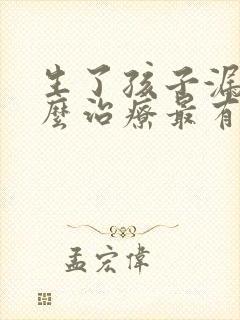 生了孩子漏
麼治療最有
孟宏偉